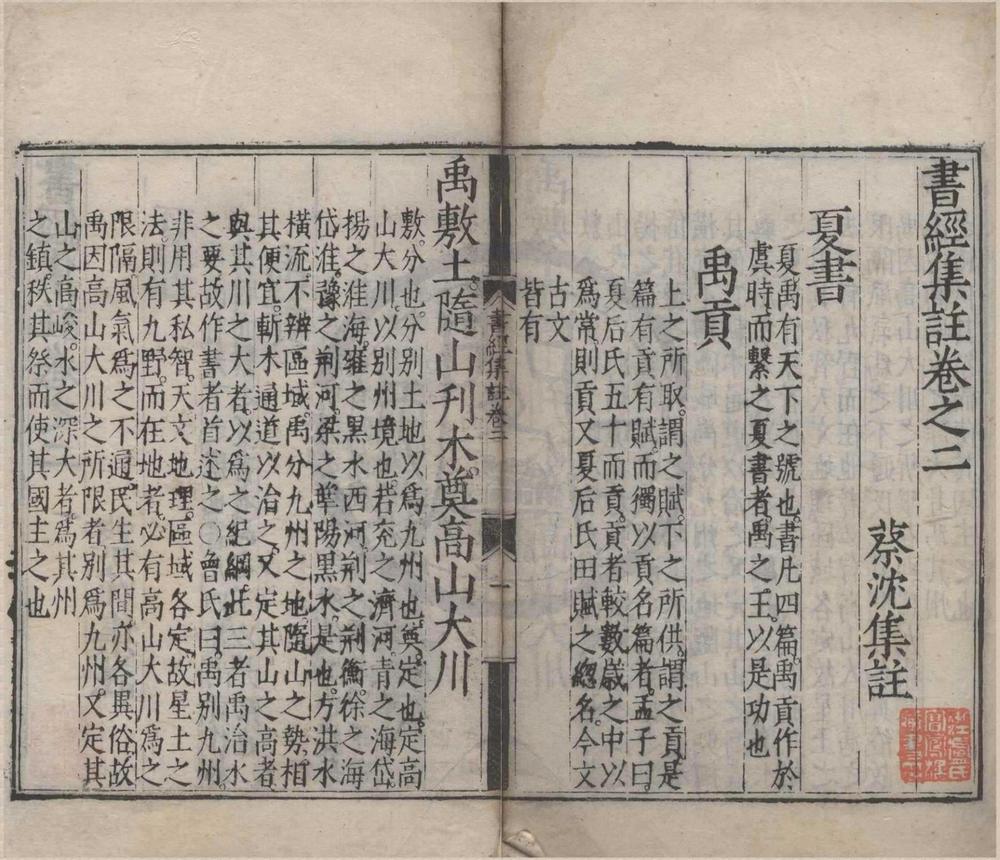 書經集註卷之二
蔡沈集註
夏書
夏禹有天下之號也。書凡四篇。禹貢作於
虞時而繫之夏書者禹之王以是功也
禹貢
上之所取。謂之賦。下之所供。謂之貢。是
篇有貢有賦。而獨以貢名篇者。孟子曰。
夏后氏五十而貢。貢者較數歲之中以
爲常。則貢又夏后氏田賦之緫名。今文
古文
皆有
書經集註卷二
一
禹敷土。隨山刋木。奠高山大川
敷。分也。分别土地以爲九州也。奠。定也。定高
山大川。以别州境也。若兖之濟河。青之海岱。
揚之淮海。雍之黒水西河。荆之荆衡。徐之海
岱淮。豫之荆河。梁之華陽黒水。是也。方洪水
橫流。不辨區域。禹分九州之地。隨山之勢。相
其便宜。斬木通道以治之。又定其山之高者
與其川之大者。以爲之紀綱。此三者禹治水
之要。故作書者首述之○曾氏曰。禹别九州。
非用其私智。天文地理。區域各定。故星土之
法。則有九野。而在地者。必有高山大川爲之
限隔。風氣爲之不通。民生其間。亦各異俗。故
禹因高山大川之所限者别爲九州。又定其
山之高峻。水之深大者。爲其州
之鎮。秩其祭而使其國主之也